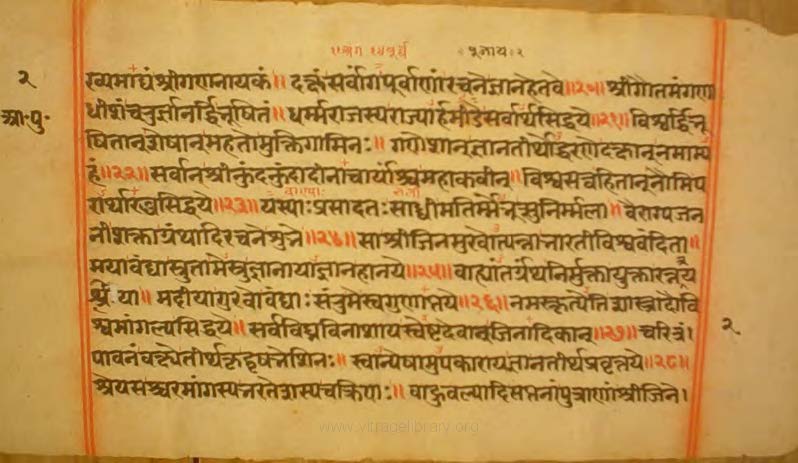 २
आ.पु.
रव्यमाद्यं श्रीगणनायकं॥ दक्षं सर्वांगपूर्वाणां रचने ज्ञानहेतवे॥२०॥ श्रीगौतमं गणा
धीशं चतुर्ज्ञानर्द्धिभूषितं॥ धर्म्मराजस्य राज्यार्हमीडे सर्वार्थसिद्धये॥२१॥ विश्वर्द्धिभू
षितान् शेषान् महतो मुक्तिगामिनः॥ गणेशान् ज्ञानतीर्थोद्धरणदक्षान् नमाम्य
हं॥२२॥ सर्वान् श्रीकुंदकुंदादीनाचार्याश्च महाकवीन्॥ विश्वसत्त्वहितान्नौमि प
रार्थारब्धसिद्धये॥२३॥ यस्याः प्रसादतः साध्वी मतिर्म्मेभूत्सुनिर्म्मला॥ वैराग्यजन
नी शक्ता ग्रंथादिरचने शुभे॥२४॥ सा श्रीजिनमुखोत्पन्ना भारती विश्ववंदिता॥
मया वंद्या स्तुता मेस्तु ज्ञानायाज्ञानहानये॥२५॥ बाह्यांतर्ग्रंथनिर्मुक्ता युक्ता रत्नत्र
श्रिया॥ मदीया गुरवो वंद्याः संतु मे स्वगुणाप्तये॥२६॥ नमस्कृत्येति शास्त्रादौ वि
श्वमांगल्यसिद्धये॥ सर्वविघ्नविनाशाय स्वेष्टदेवान् जिनादिकान्॥२७॥ चरित्रं।
२
पावनं वक्ष्ये तीर्थकृद्वृषभेशिनः॥ स्वान्येषामुपकाराय ज्ञानतीर्थप्रवृत्तये॥२८॥
श्रेयसश्चरमांगस्य भरतेशस्य चक्रिणः॥ बाहुबल्यादिसप्तानां पुत्राणां श्रीजिने।
www.vitragelibrary.org